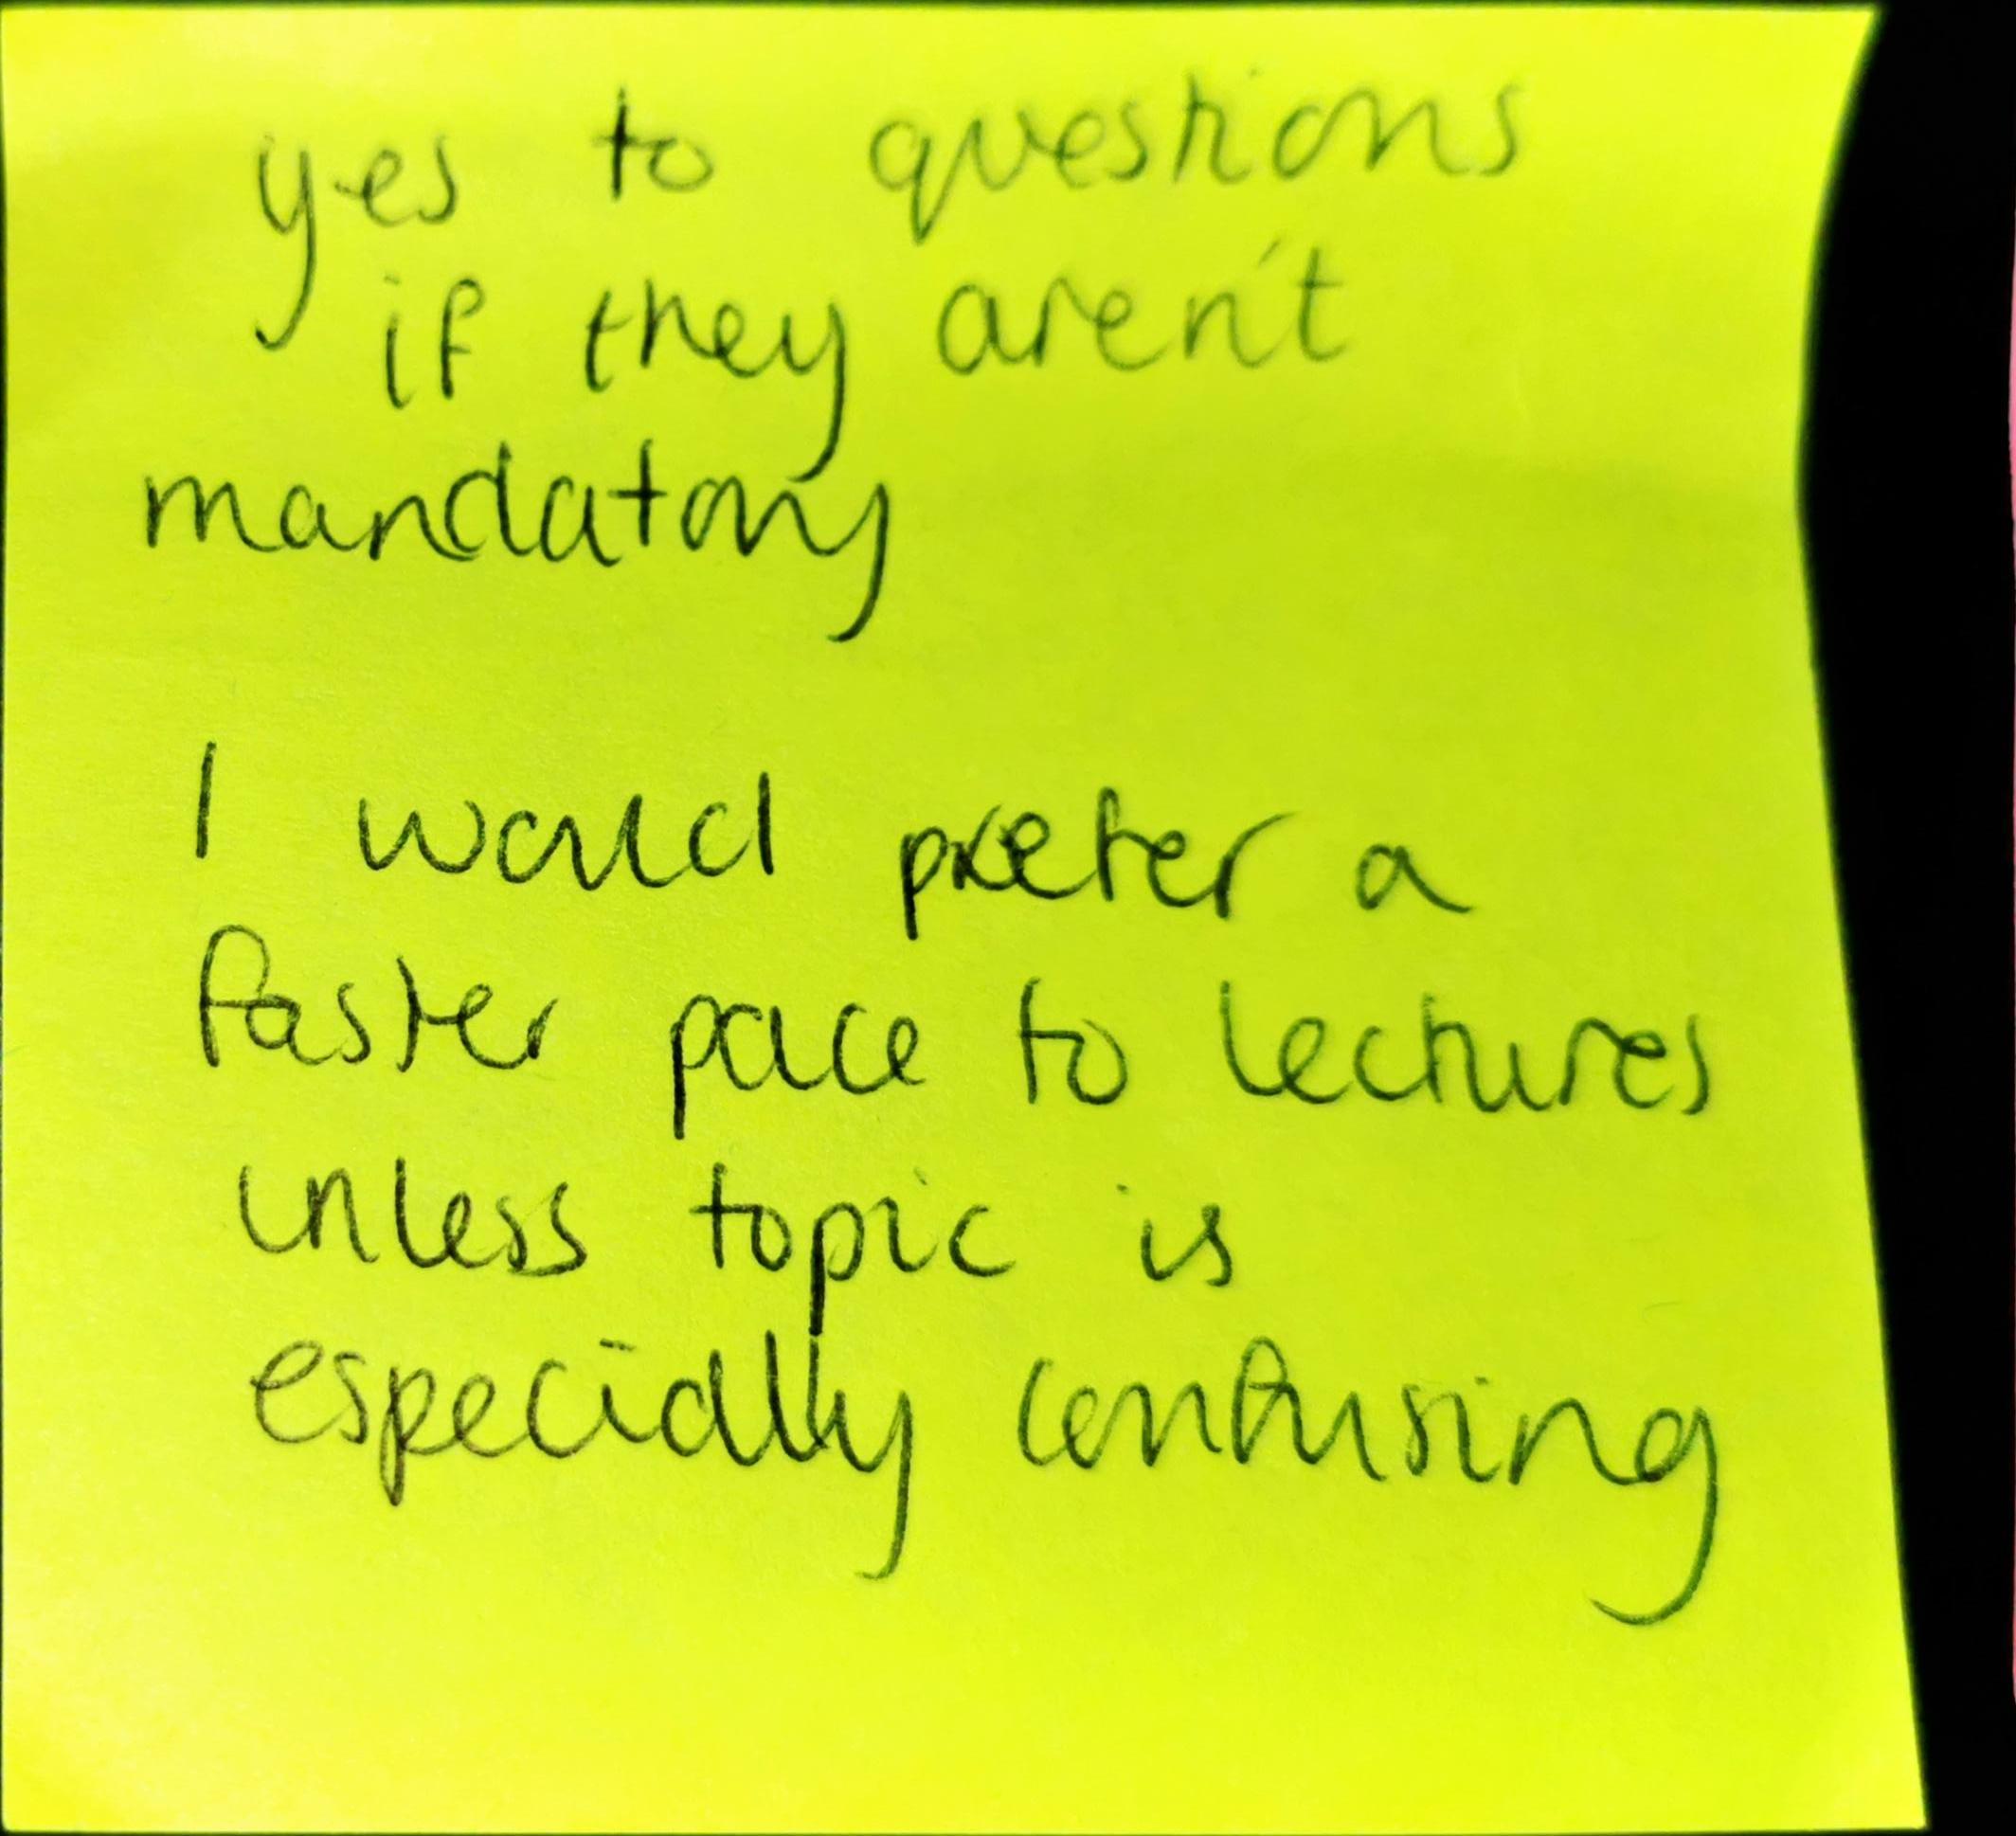 yes to questions
if they aren't
mandatory
I would prefer a
faster pace to lectures
unless topic is
especially confusing